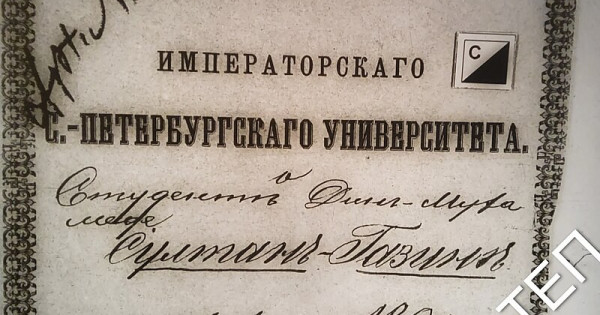 ИМПЕРАТОРСКАГО
С
С.-ПЕТЕРБУРГСКАГО УНИВЕРСИТЕТА.
Студентъ Дин-Муха
меде
Султанъ-Газинъ
ТЕП